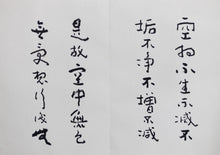 空相不生不滅不
垢不净不增不减
是故空中無色
無受想行識無